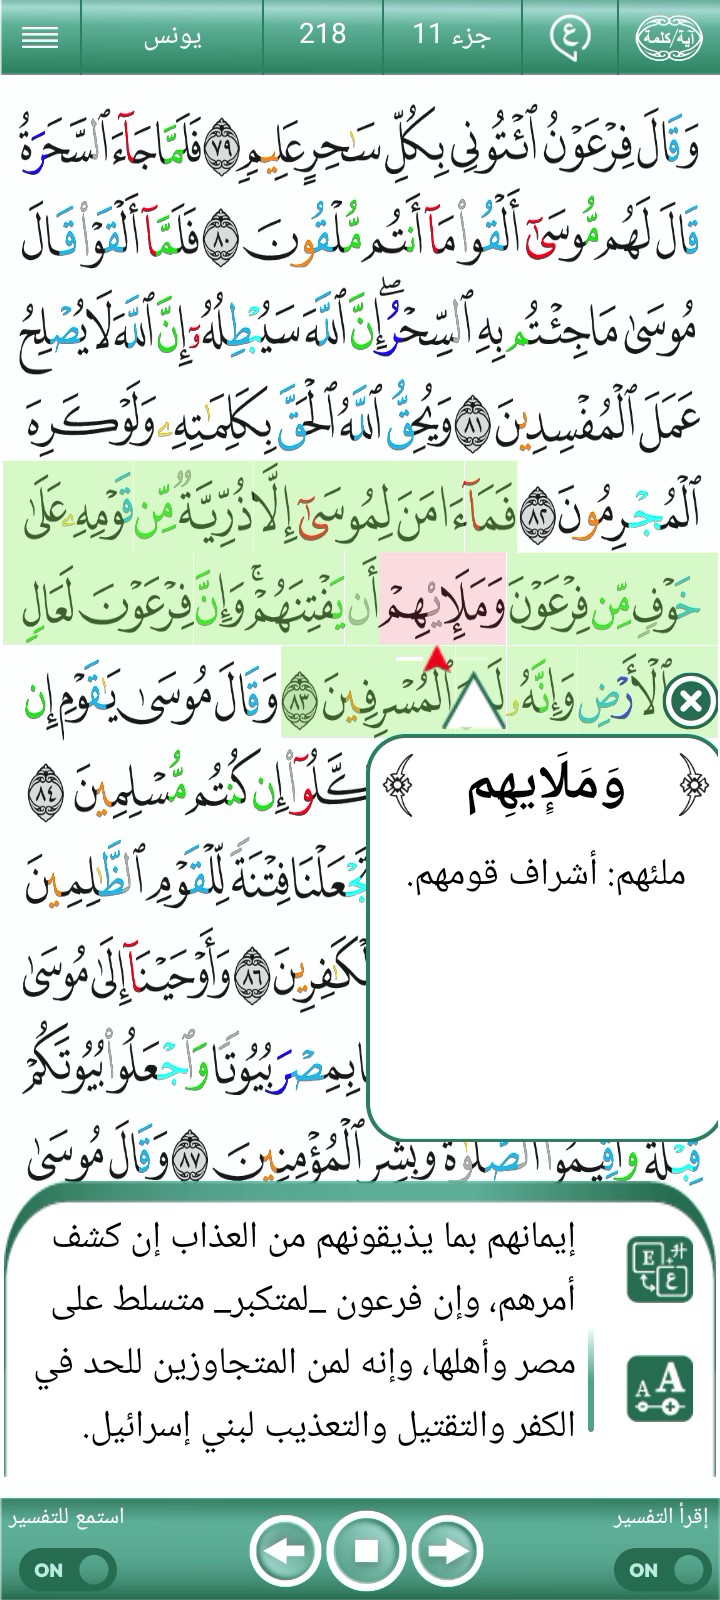 آية/كلمة ع جزء 11 218 يونس
وَقَالَ فِرْعَوْنُ ٱئْتُونِى بِكُلِّ سَـٰحِرٍ عَلِيمٍ ٧٩ فَلَمَّا جَآءَ ٱلسَّحَرَةُ
قَالَ لَهُم مُّوسَىٰٓ أَلْقُوا۟ مَآ أَنتُم مُّلْقُونَ ٨٠ فَلَمَّآ أَلْقَوْا۟ قَالَ
مُوسَىٰ مَا جِئْتُم بِهِ ٱلسِّحْرُ ۖ إِنَّ ٱللَّهَ سَيُبْطِلُهُۥٓ إِنَّ ٱللَّهَ لَا يُصْلِحُ
عَمَلَ ٱلْمُفْسِدِينَ ٨١ وَيُحِقُّ ٱللَّهُ ٱلْحَقَّ بِكَلِمَـٰتِهِۦ وَلَوْ كَرِهَ
ٱلْمُجْرِمُونَ ٨٢ فَمَآ ءَامَنَ لِمُوسَىٰٓ إِلَّا ذُرِّيَّةٌ مِّن قَوْمِهِۦ عَلَىٰ
خَوْفٍ مِّن فِرْعَوْنَ وَمَلَإِي۟هِمْ أَن يَفْتِنَهُمْ ۚ وَإِنَّ فِرْعَوْنَ لَعَالٍ
ٱلْأَرْضِ وَإِنَّهُۥ ٱلْمُسْرِفِينَ ٨٣ وَقَالَ مُوسَىٰ يَـٰقَوْمِ إِن
كَّلُوٓا۟ إِن كُنتُم مُّسْلِمِينَ ٨٤
تَجْعَلْنَا فِتْنَةً لِّلْقَوْمِ ٱلظَّـٰلِمِينَ
لْكَـٰفِرِينَ ٨٦ وَأَوْحَيْنَآ إِلَىٰ مُوسَىٰ
بِمِصْرَ بُيُوتًا وَٱجْعَلُوا۟ بُيُوتَكُمْ
قِبْلَةً وَأَقِيمُوا۟ ٱلصَّلَوٰةَ وَبَشِّرِ ٱلْمُؤْمِنِينَ ٨٧ وَقَالَ مُوسَىٰ
وَمَلَإِيهِم
ملئهم: أشراف قومهم.
إيمانهم بما يذيقونهم من العذاب إن كشف
أمرهم، وإن فرعون _لمتكبر_ متسلط على
مصر وأهلها، وإنه لمن المتجاوزين للحد في
الكفر والتقتيل والتعذيب لبني إسرائيل.
إقرأ التفسير استمع للتفسير
ON ON